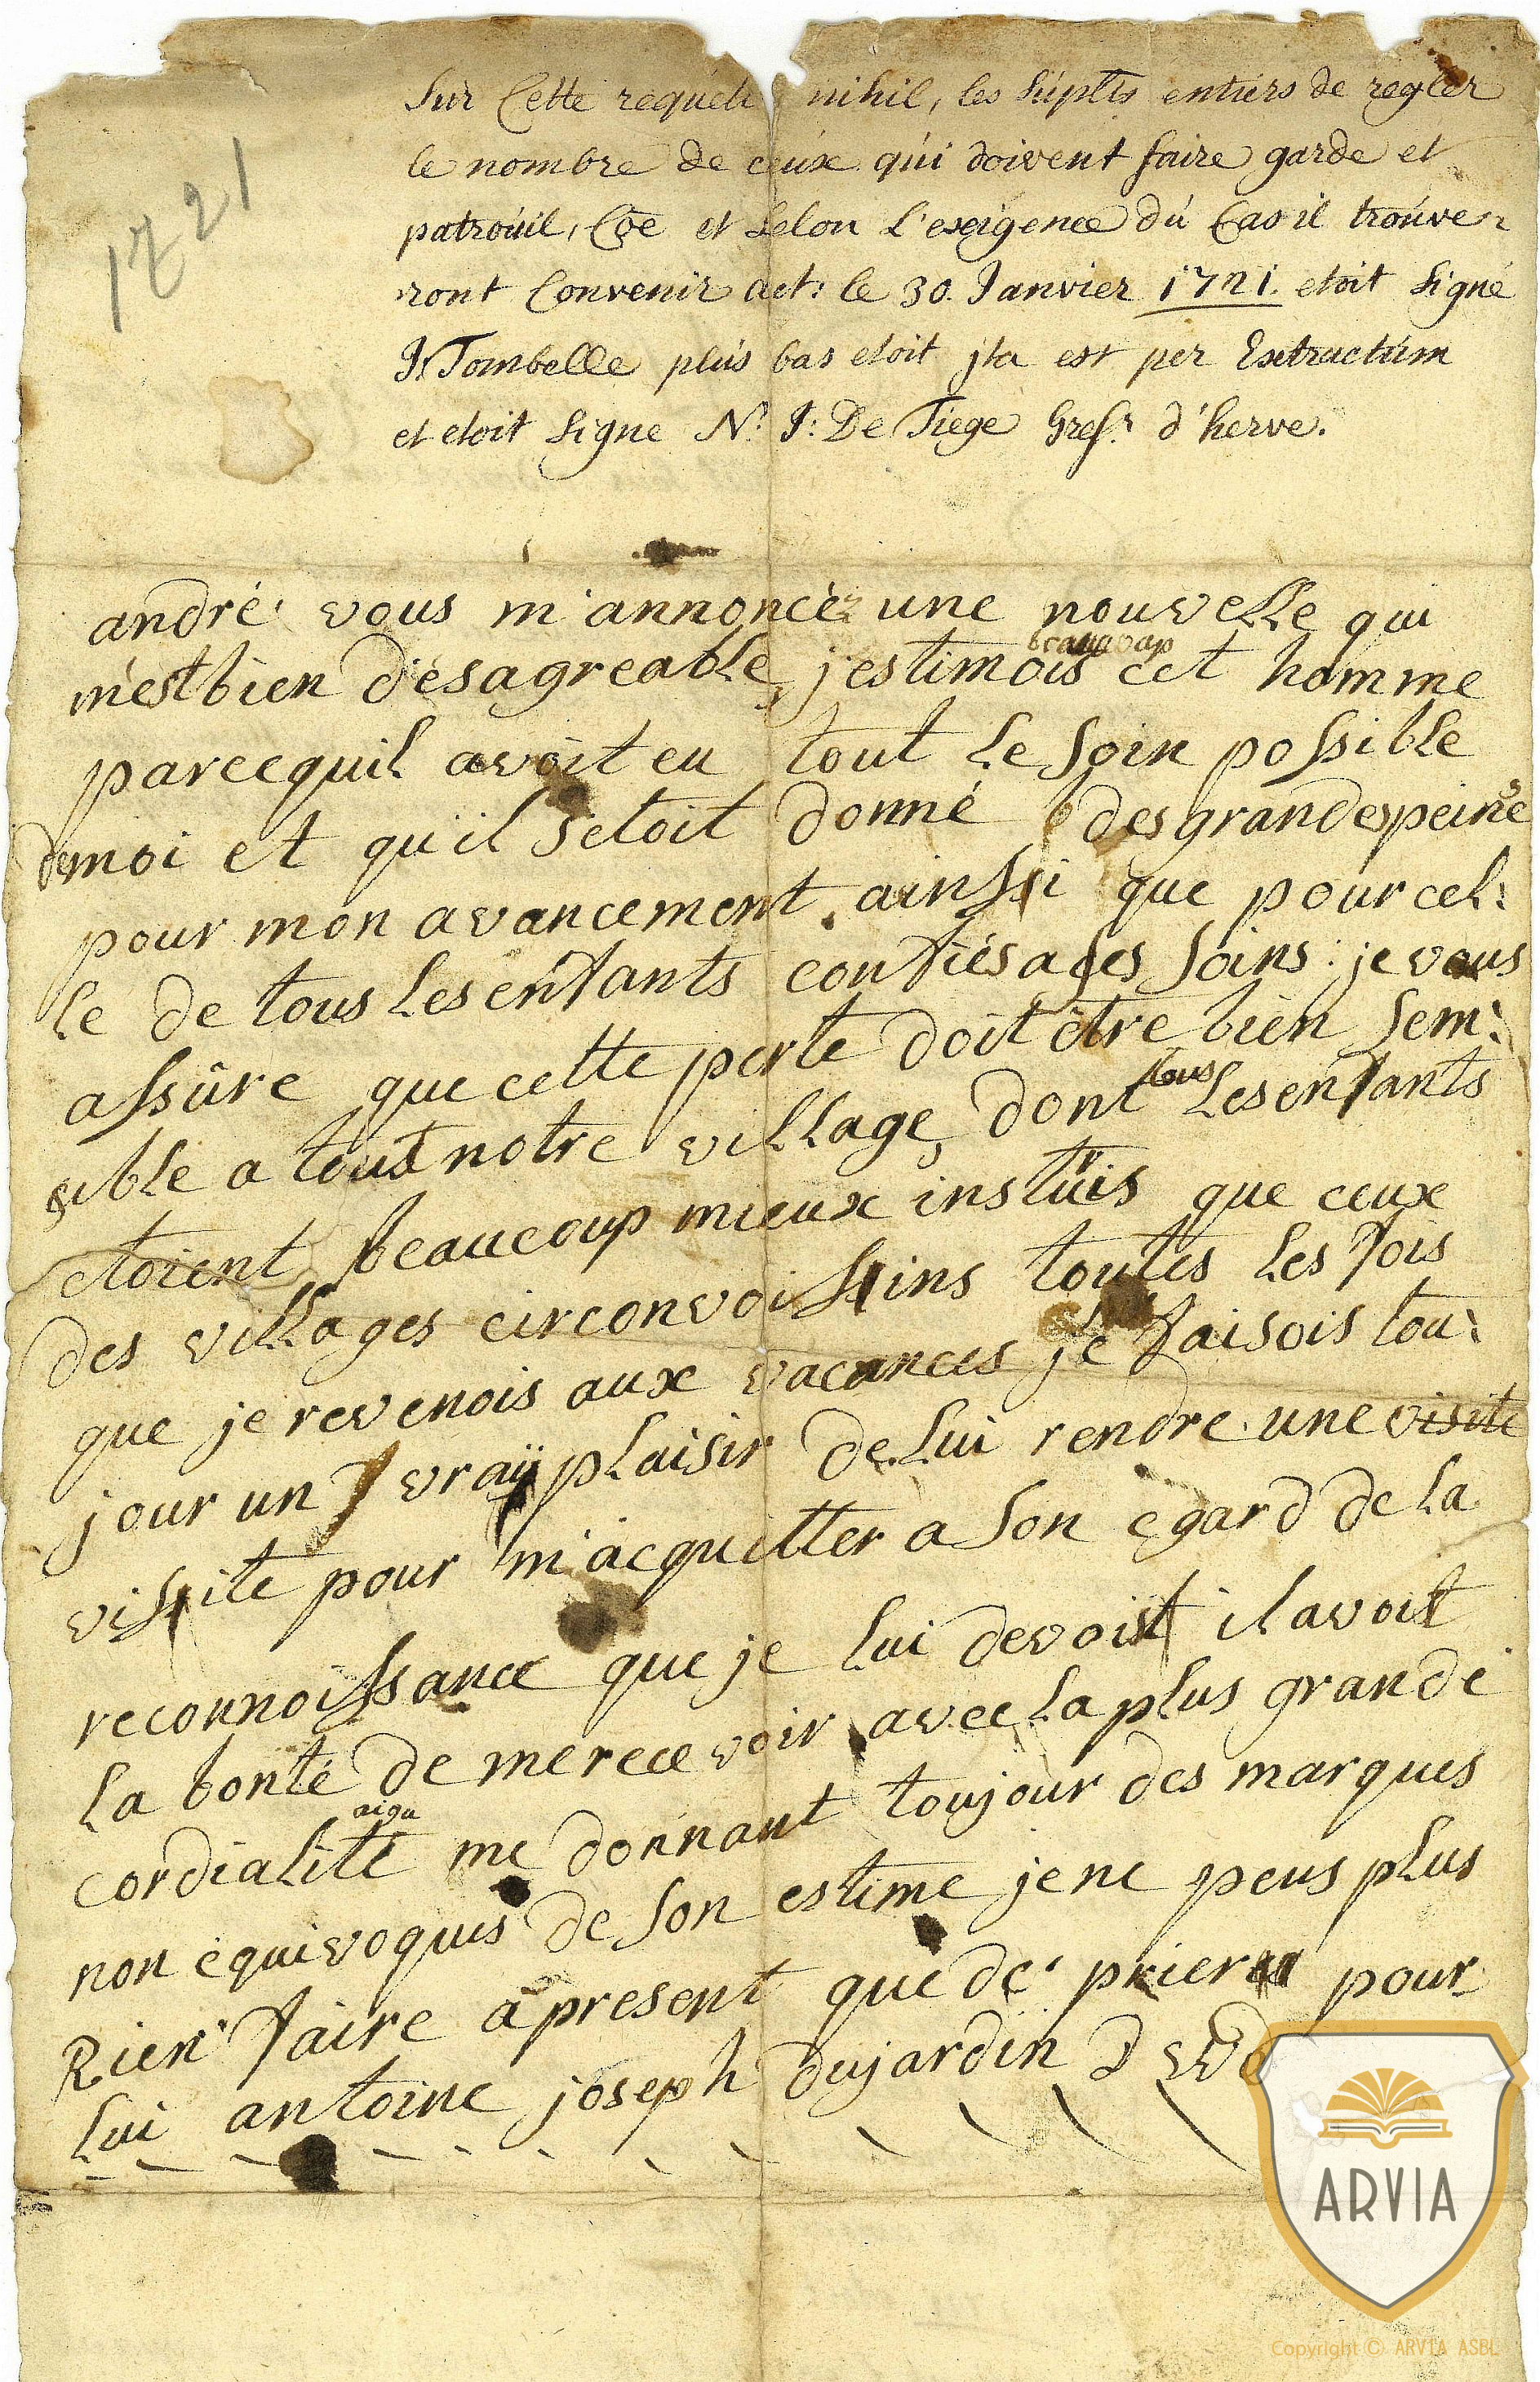 1721
Sur Cette requete nihil, les Supltˢ entiers de regler
le nombre de ceux qui doivent faire garde et
patrouil, Coe et selon l'exigence du Cas il trouve-
ront Convenir act: le 30. Janvier 1721. etoit signé
J: Tombelle plus bas etoit jta est per Extractum
et etoit signe N: J: De Tiege Gref.ʳ d'herve.
andré vous m'annoncéz une nouvelle qui
beaucoup
m'est bien désagreable, j'estimois cet homme
parcequil avoit eu tout le soin possible
de moi et qu'il s'etoit donné des grandes peines
pour mon avancement, ainssi que pour cel:
le de tous les enfants confiés a ses soins: je vous
assûre que cette perte doit être bien sem:
sible a tout notre village, dont tous les enfants
etoient beaucoup mieux instruis que ceux
des villages circonvoissins toutes les fois
que je revenois aux vacances je faisois tou:
jour un vraÿ plaisir de lui rendre une visite
visite pour m'acquitter a son egard de la
reconnoissance que je lui devois il avoit
la bonté de me recevoir avec la plus grande
aigu
cordialité me donnant toujour des marques
non equivoques de son estime je ne peus plus
Rien faire a present que de prier pour
lui antoine joseph dujardin
ARVIA
Copyright © ARVIA ASBL